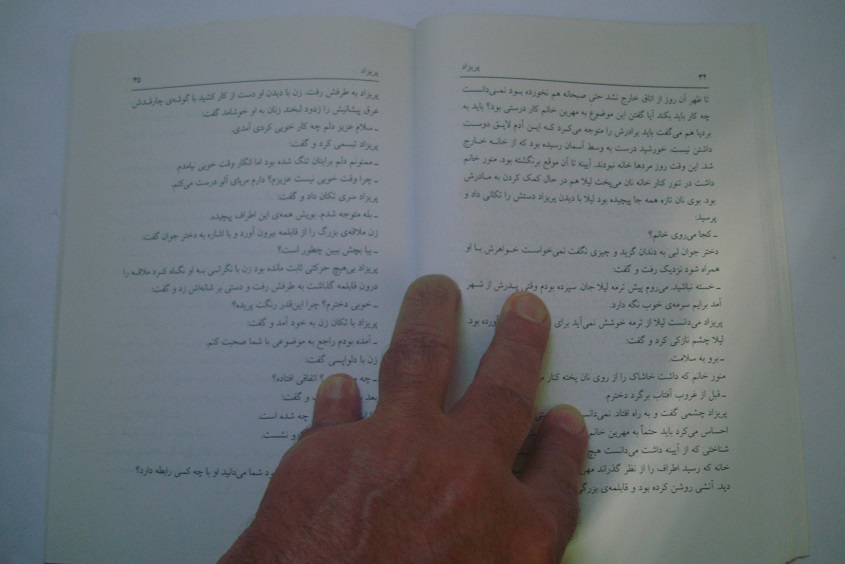 ۳۴
پریزاد
تا ظهر آن روز از اتاق خارج نشد حتی صبحانه هم نخورده بود نمی‌دانست
چه کار باید بکند آیا گفتن این موضوع به مهرین خانم کار درستی بود؟ باید به
بردیا هم می‌گفت باید برادرش را متوجه می‌کرد کـه ایـن آدم لایـق دوست
داشتن نیست. خورشید درست به وسط آسمان رسیده بود که از خانـه خـارج
شد. این وقت روز مردها خانه نبودند. آیینه تا آن موقع برنگشته بود. منور خانم
داشت در تنور کنار خانه نان می‌پخت لیلا هم در حال کمک کردن به مـادرش
بود. بوی نان تازه همه جا پیچیده بود لیلا با دیدن پریزاد دستش را تکانی داد و
پرسید:
ـ کجا می‌روی خانم؟
دختر جوان لبی به دندان گزید و چیزی نگفت نمی‌خواست خـواهرش بـا او
همراه شود نزدیک رفت و گفت:
ـ خسته نباشید. می‌روم پیش ترمه لیلا جان سپرده بودم وقتی پـدرش از شـهر
آمد برایم سرمه‌ی خوب نگه دارد.
پریزاد می‌دانست لیلا از ترمه خوشش نمی‌آید برای آورده بود.
لیلا چشم نازکی کرد و گفت:
ـ برو به سلامت.
منور خانم که داشت خاشاک را از روی نان پخته کنار
ـ قبل از غروب آفتاب برگرد دخترم.
پریزاد چشمی گفت و به راه افتاد.
احساس می‌کرد باید حتماً به مهرین خانم
شناختی که از آیینه داشت می‌دانست هیچ
خانه که رسید اطراف را از نظر گذراند
دید. آتشی روشن کرده بود و قابلمه‌ی بزرگی
پریزاد
۳۵
پریزاد به طرفش رفت. زن با دیدن او دست از کار کشید با گوشه‌ی چارقـدش
عرق پیشانیش را زدود لبخند زنان به او خوشامد گفت:
ـ سلام عزیز دلم چه کار خوبی کردی آمدی.
پریزاد تبسمی کرد و گفت:
ـ ممنونم دلم برایتان تنگ شده بود اما انگار وقت خوبی نیامدم.
ـ چرا وقت خوبی نیست عزیزم؟ دارم مربای آلو درست می‌کنم.
پریزاد سری تکان داد و گفت:
ـ بله متوجه شدم. بویش همه‌ی این اطراف پیچیده
زن ملاقه‌ی بزرگ را از قابلمه بیرون آورد و با اشاره به دختر جوان گفت:
ـ بیا بچش ببین چطور است؟
پریزاد بی‌هیچ حرکتی ثابت مانده بود زن با نگرانی به او نگاه کـرد ملاقـه را
درون قابلمه گذاشت به طرفش رفت و دستی بر شانه‌اش زد و گفت:
ـ خوبی دخترم؟ چرا این‌قدر رنگت پریده؟
پریزاد با تکان زن به خود آمد و گفت:
ـ آمده بودم راجع به موضوعی با شما صحبت کنم.
زن با دلواپسی گفت:
ـ چه اتفاقی افتاده؟
بعد و گفت:
چه شده است.
و نشست.
شما می‌دانید او با چه کسی رابطه دارد؟